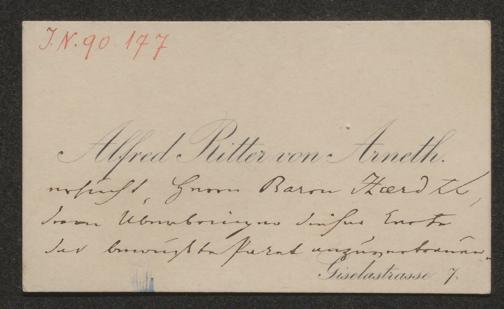 J.N. 90 177
Alfred Ritter von Arneth.
ersucht, Herrn Baron Haerdtl,
dem Überbringer dieser Karte
das bewußte Paket anzuvertrauen.
Giselastrasse 7.